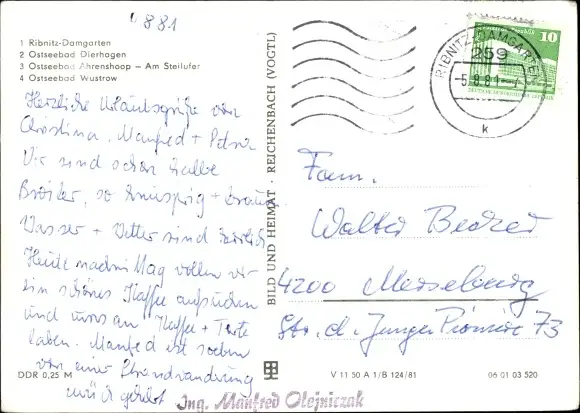 881
1 Ribnitz-Damgarten
2 Ostseebad Dierhagen
3 Ostseebad Ahrenshoop – Am Steilufer
4 Ostseebad Wustrow
Herzliche Urlaubsgrüße von
Christina, Manfred + Petra
Wir sind schon halbe
Broiler, so knusprig + braun
Wasser + Wetter sind herrlich
Heute nachmittag wollen wir
ein schönes Kaffee aufsuchen
und uns an Kaffee + Torte
laben. Manfred ist soeben
von einer Strandwanderung
zurück gekehrt
DDR 0,25 M
Ing. Manfred Olejniczak
BILD UND HEIMAT · REICHENBACH (VOGTL)
RIBNITZ-DAMGARTEN
259
-5.8.81-
k
10
Fam.
Walter
4200 Merseburg
Str. d. Junger Pioniere 73
V 11 50 A 1/B 124/81
06 01 03 520